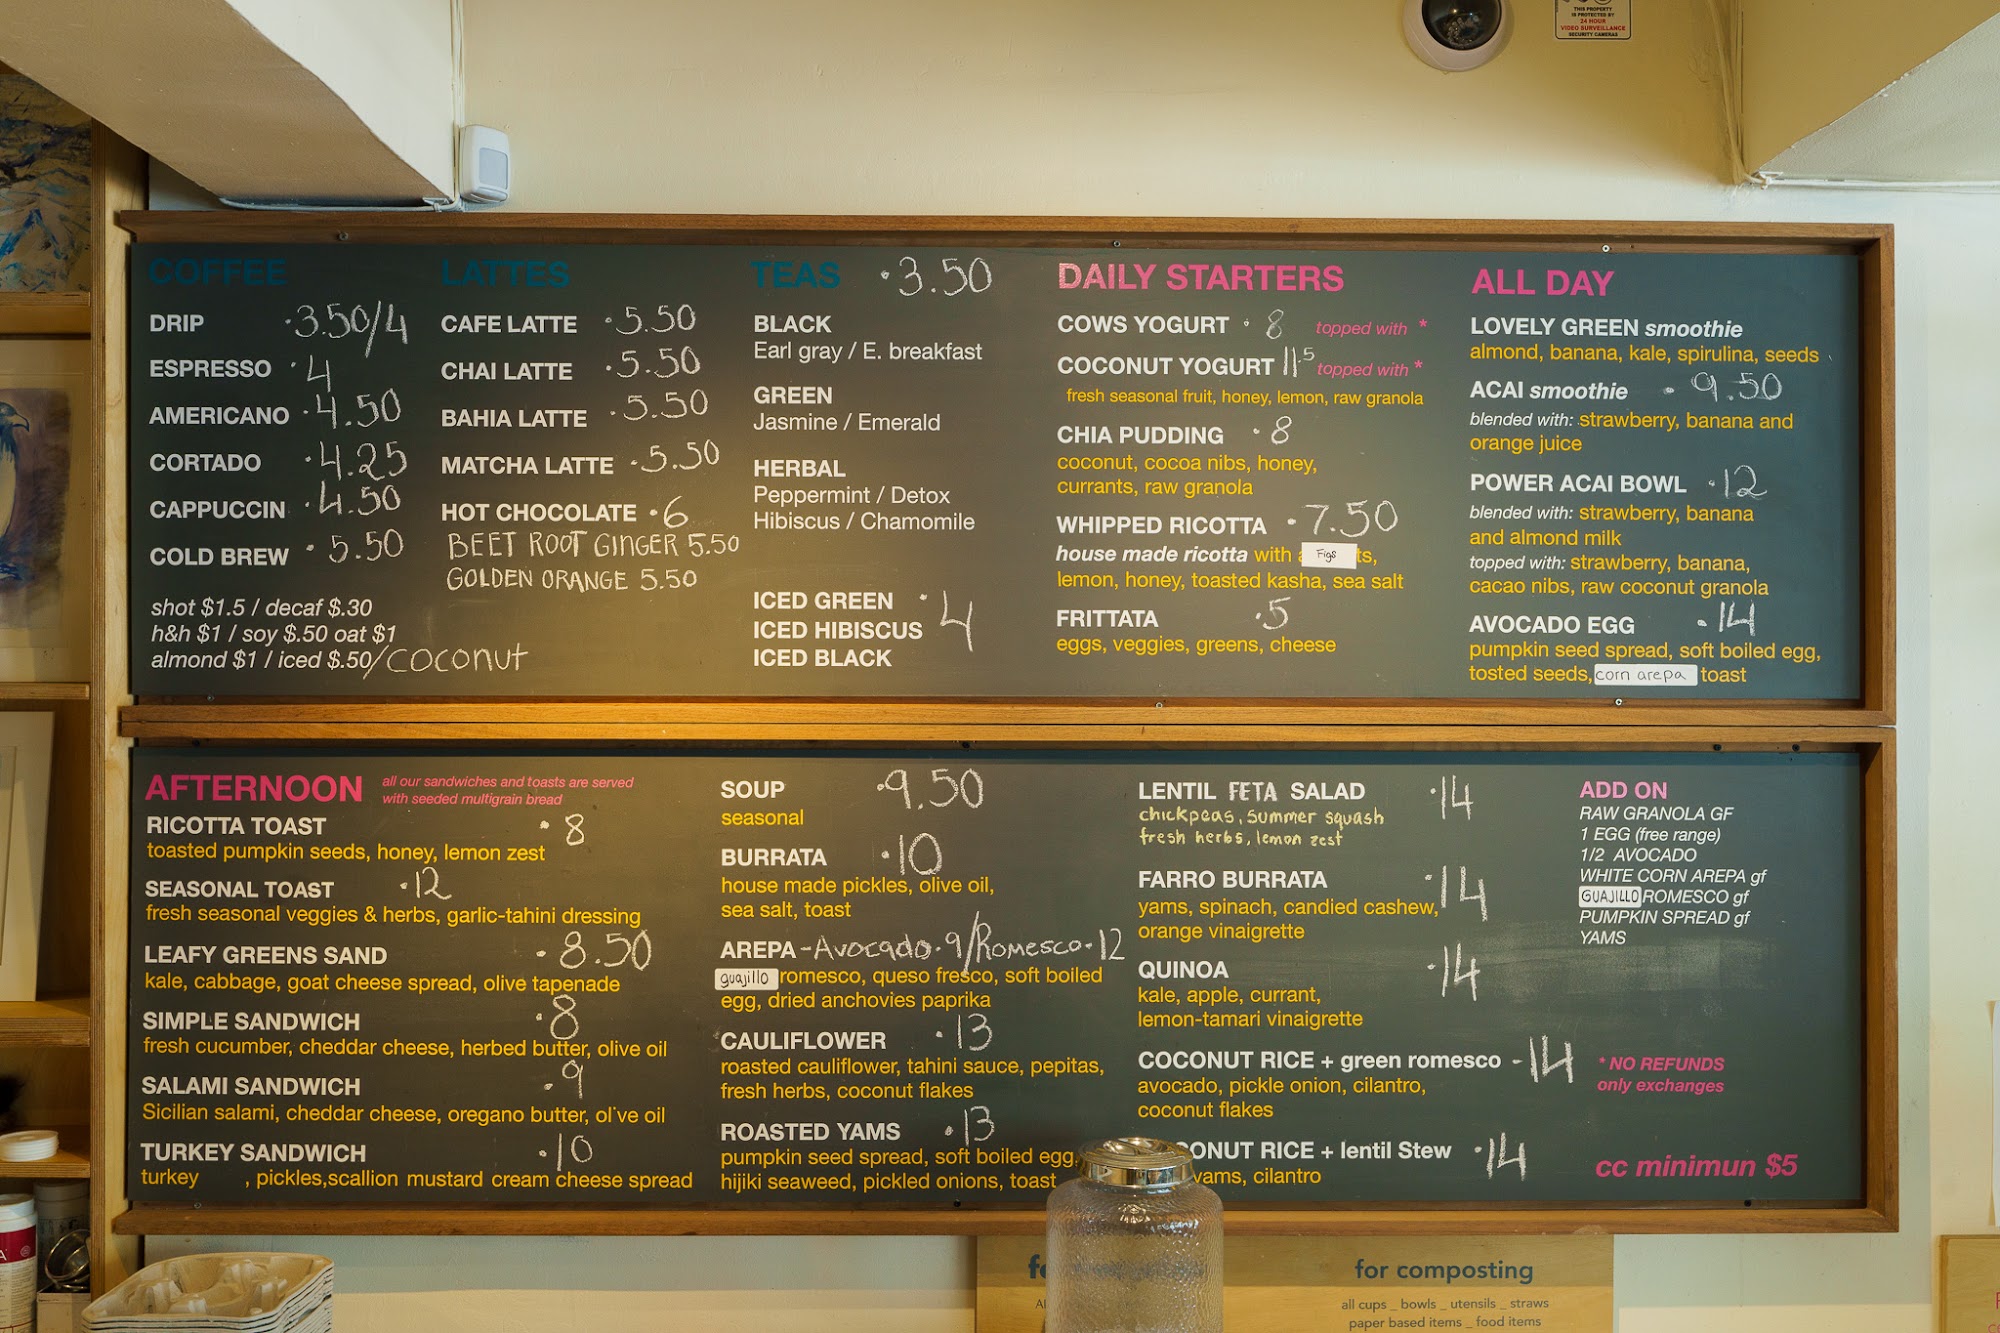 THIS PROPERTY
IS PROTECTED BY
24 HOUR
VIDEO SURVEILLANCE
SECURITY CAMERAS
COFFEE
DRIP ·3.50/4
ESPRESSO ·4
AMERICANO ·4.50
CORTADO ·4.25
CAPPUCCIN ·4.50
COLD BREW ·5.50
shot $1.5 / decaf $.30
h&h $1 / soy $.50 oat $1
almond $1 / iced $.50/coconut
LATTES
CAFE LATTE ·5.50
CHAI LATTE ·5.50
BAHIA LATTE ·5.50
MATCHA LATTE ·5.50
HOT CHOCOLATE ·6
BEET ROOT GINGER 5.50
GOLDEN ORANGE 5.50
TEAS ·3.50
BLACK
Earl gray / E. breakfast
GREEN
Jasmine / Emerald
HERBAL
Peppermint / Detox
Hibiscus / Chamomile
ICED GREEN ·4
ICED HIBISCUS
ICED BLACK
DAILY STARTERS
COWS YOGURT ·8 topped with *
COCONUT YOGURT 11.5 topped with *
fresh seasonal fruit, honey, lemon, raw granola
CHIA PUDDING ·8
coconut, cocoa nibs, honey,
currants, raw granola
WHIPPED RICOTTA ·7.50
house made ricotta with Figs ts,
lemon, honey, toasted kasha, sea salt
FRITTATA ·5
eggs, veggies, greens, cheese
ALL DAY
LOVELY GREEN smoothie
almond, banana, kale, spirulina, seeds
ACAI smoothie ·9.50
blended with: strawberry, banana and
orange juice
POWER ACAI BOWL ·12
blended with: strawberry, banana
and almond milk
topped with: strawberry, banana,
cacao nibs, raw coconut granola
AVOCADO EGG ·14
pumpkin seed spread, soft boiled egg,
tosted seeds, corn arepa toast
AFTERNOON
all our sandwiches and toasts are served
with seeded multigrain bread
RICOTTA TOAST ·8
toasted pumpkin seeds, honey, lemon zest
SEASONAL TOAST ·12
fresh seasonal veggies & herbs, garlic-tahini dressing
LEAFY GREENS SAND ·8.50
kale, cabbage, goat cheese spread, olive tapenade
SIMPLE SANDWICH ·8
fresh cucumber, cheddar cheese, herbed butter, olive oil
SALAMI SANDWICH ·9
Sicilian salami, cheddar cheese, oregano butter, ol've oil
TURKEY SANDWICH ·10
turkey , pickles,scallion mustard cream cheese spread
SOUP ·9.50
seasonal
BURRATA ·10
house made pickles, olive oil,
sea salt, toast
AREPA -Avocado·9/Romesco·12
guajillo romesco, queso fresco, soft boiled
egg, dried anchovies paprika
CAULIFLOWER ·13
roasted cauliflower, tahini sauce, pepitas,
fresh herbs, coconut flakes
ROASTED YAMS ·13
pumpkin seed spread, soft boiled egg,
hijiki seaweed, pickled onions, toast
LENTIL FETA SALAD ·14
chickpeas, summer squash
fresh herbs, lemon zest
FARRO BURRATA ·14
yams, spinach, candied cashew,
orange vinaigrette
QUINOA ·14
kale, apple, currant,
lemon-tamari vinaigrette
COCONUT RICE + green romesco -14
avocado, pickle onion, cilantro,
coconut flakes
ONUT RICE + lentil Stew ·14
yams, cilantro
ADD ON
RAW GRANOLA GF
1 EGG (free range)
1/2 AVOCADO
WHITE CORN AREPA gf
GUAJILLO ROMESCO gf
PUMPKIN SPREAD gf
YAMS
* NO REFUNDS
only exchanges
cc minimun $5
for composting
all cups _ bowls _ utensils _ straws
paper based items _ food items